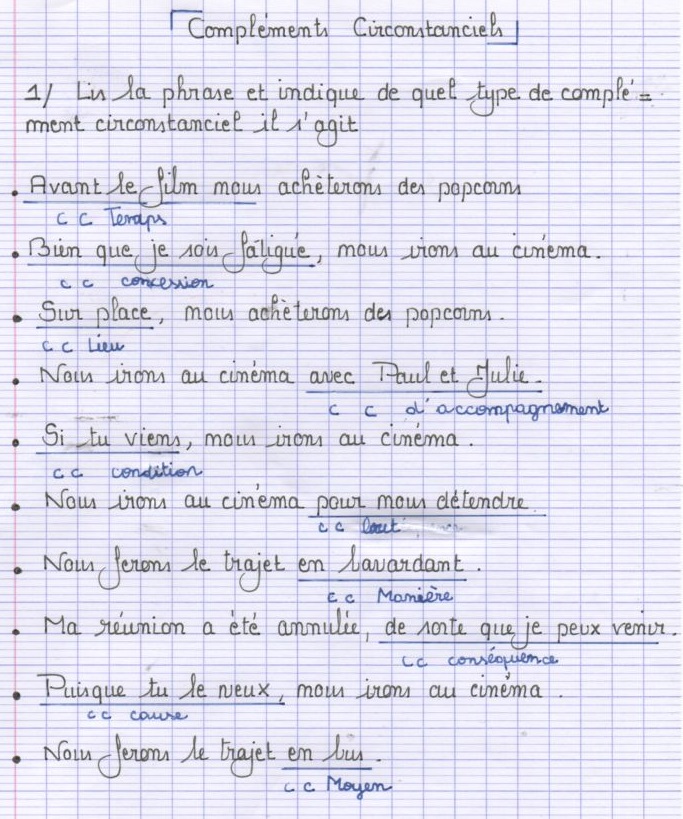 Compléments Circonstanciels
1/ Lis la phrase et indique de quel type de complé=
ment circonstanciel il s'agit
• Avant le film nous achèterons des popcorns
c c Temps
• Bien que je sois fatigué, nous irons au cinéma.
c c concession
• Sur place, nous achèterons des popcorns.
c c Lieu
• Nous irons au cinéma avec Paul et Julie.
c c d'accompagnement
• Si tu viens, nous irons au cinéma.
c c condition
• Nous irons au cinéma pour nous détendre
c c but
• Nous ferons le trajet en bavardant.
c c Manière
• Ma réunion a été annulée, de sorte que je peux venir.
cc conséquence
• Puisque tu le veux, nous irons au cinéma.
c c cause
• Nous ferons le trajet en bus.
c c Moyen